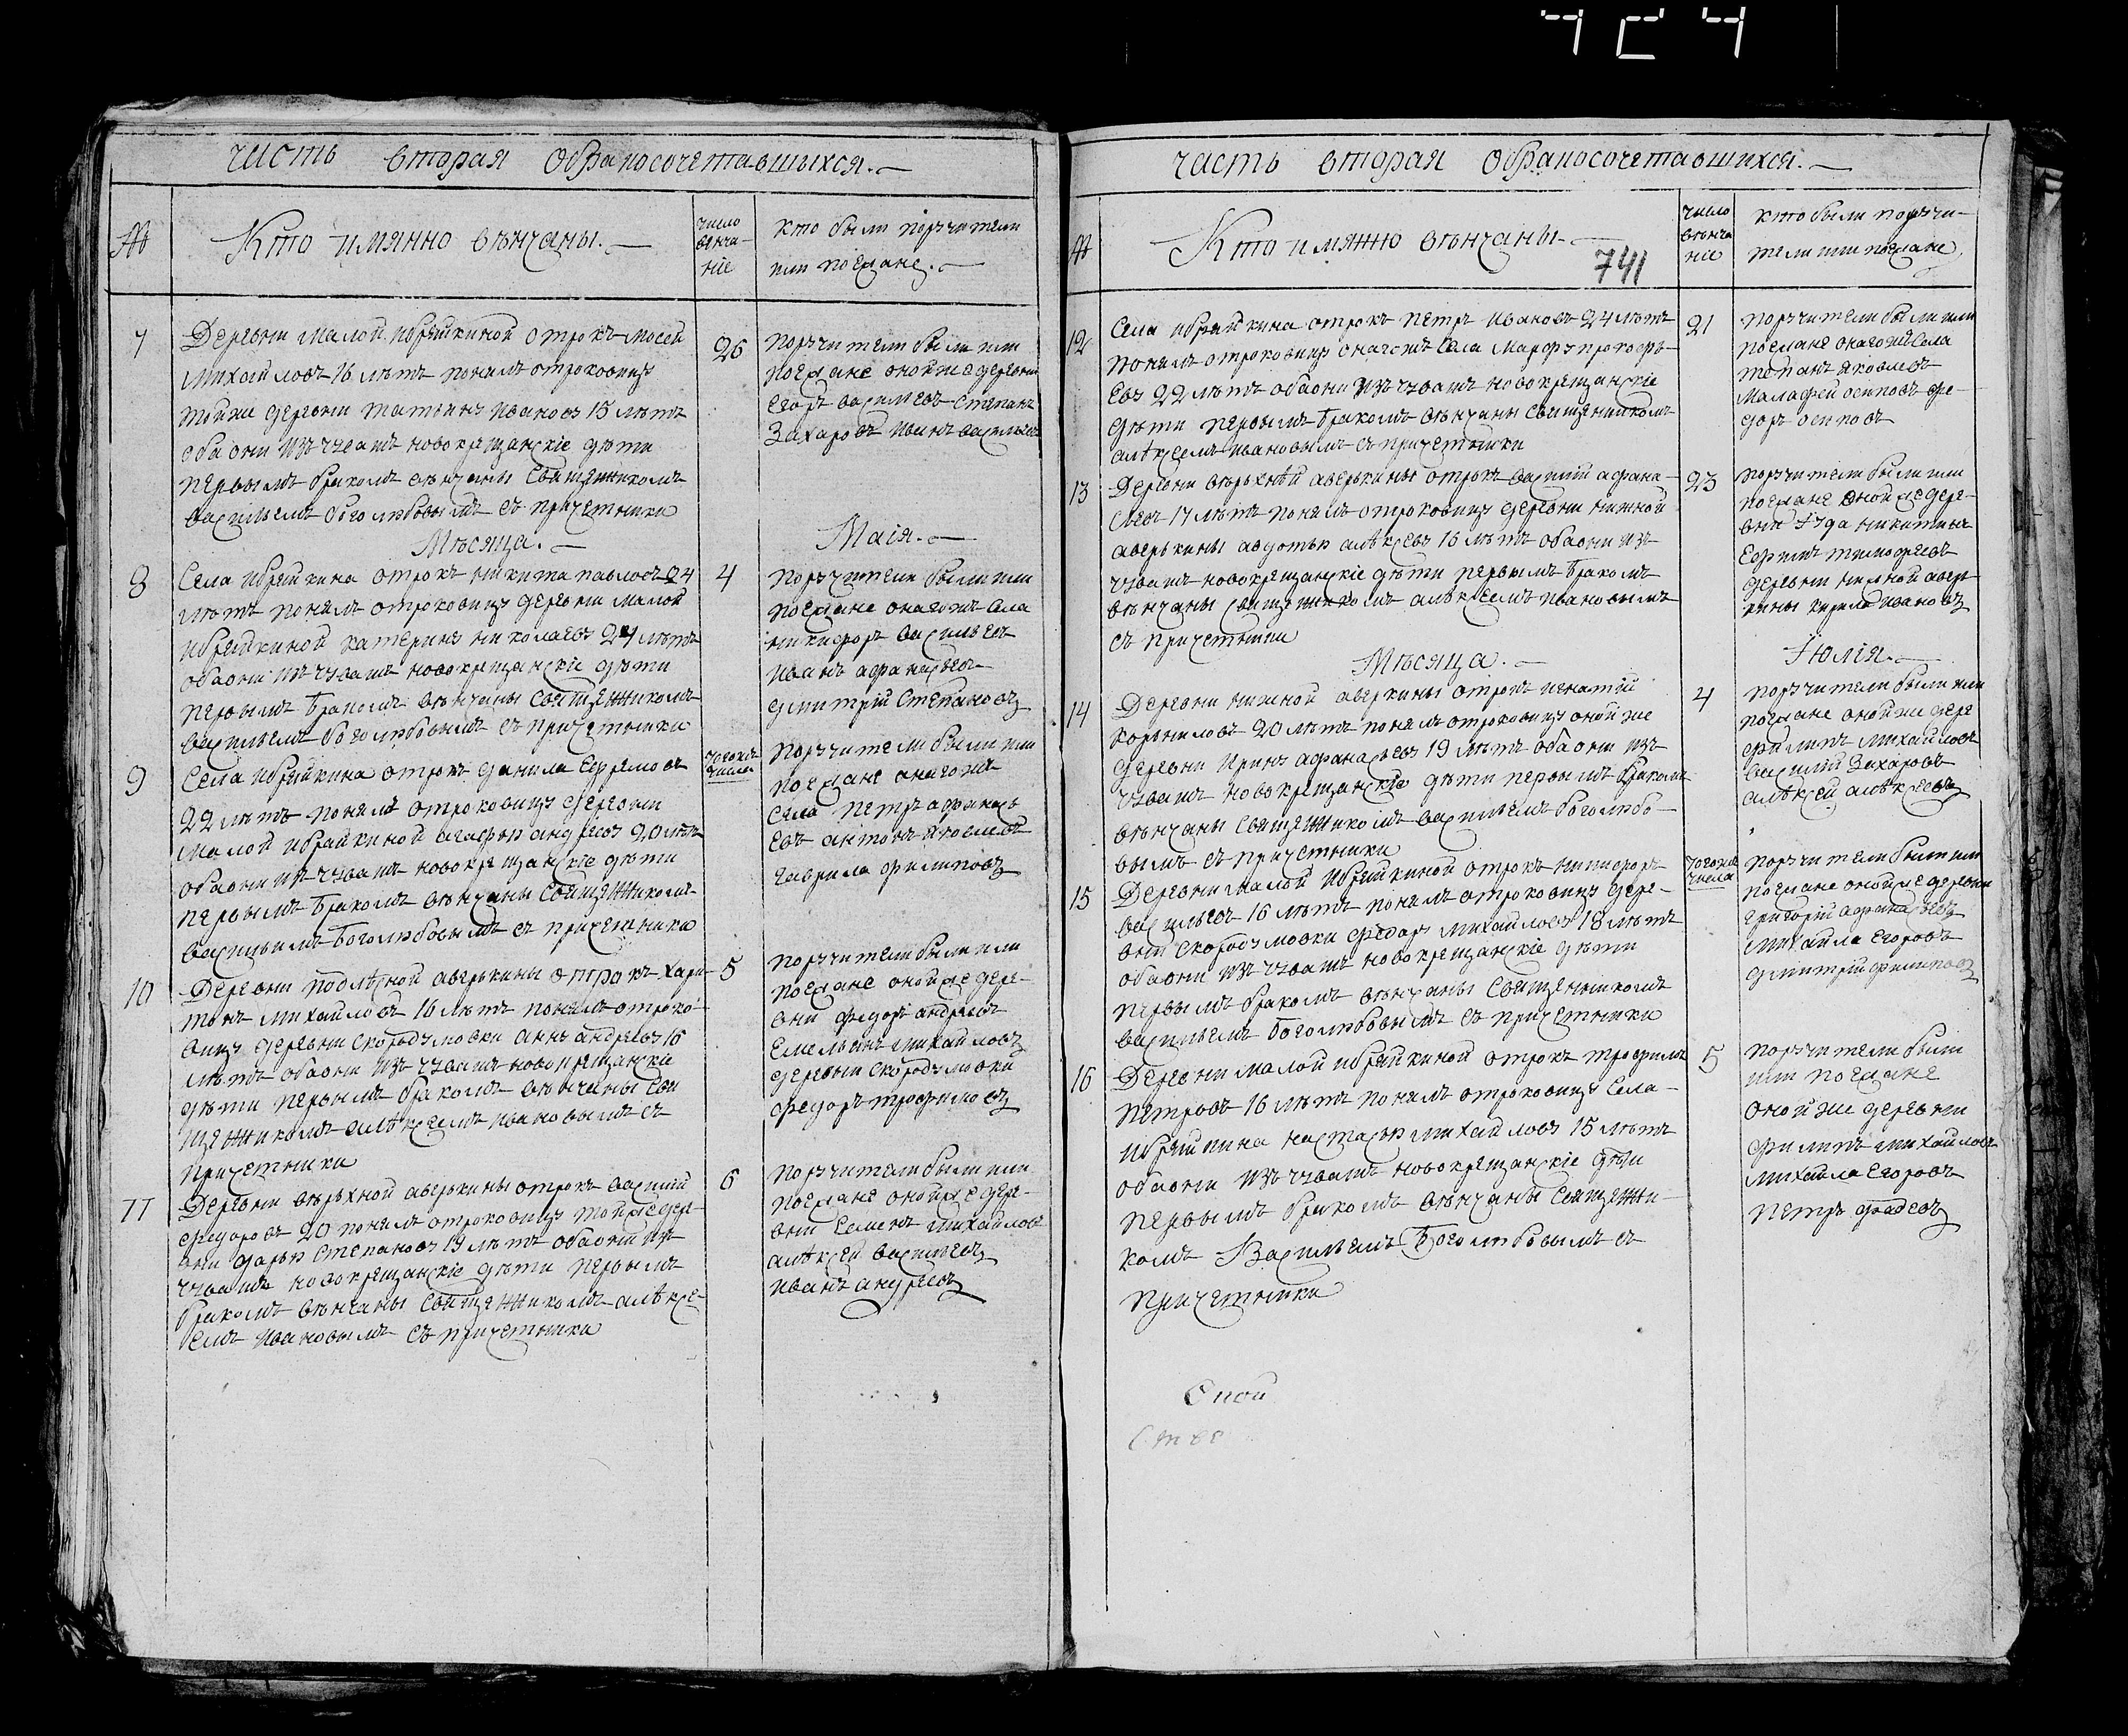 часть вторая обраносочетавшыхся.
№
Кто имянно венчаны.
число
венча-
ніе
кто были поручители
или поезжане.
7
Деревни малой ибряйкиной отрокъ мосей
михайловъ 16 летъ понялъ отроковицу
тойже деревни татьяну иванову 15 летъ
обаони изъ чувашъ новокрещанскіе дети
первымъ бракомъ венчаны священникомъ
васильемъ боголюбовымъ съ причетники
26
поручители были или
поезжане оной же деревни
егоръ васильевъ степанъ
захаровъ иванъ васильевъ
Месяца.
Маія.
8
Села ибряйкина отрокъ никита павловъ 24
летъ понялъ отроковицу деревни малой
ибряйкиной катерину николаеву 24 летъ
обаони изъ чувашъ новокрещанскіе дети
первымъ бракомъ венчаны священникомъ
васильемъ боголюбовымъ съ причетники
4
поручители были или
поезжане онагожъ села
никифоръ васильевъ
иванъ афанасьевъ
дмитрій степановъ
9
Села ибряйкина отрокъ данила ефремовъ
22 летъ понялъ отроковицу деревни
малой ибряйкиной агафью андрееву 20 летъ
обаони изъ чувашъ новокрещанскіе дети
первымъ бракомъ венчаны священникомъ
васильимъ боголюбовымъ съ причетники
тогожъ
числа
поручители были или
поезжане онагожъ
села петръ афанась
евъ антонъ яковлевъ
гаврила филиповъ
10
Деревни подлесной аверькины отрокъ хари-
тонъ михайловъ 16 летъ понялъ отроко-
вицу деревни скородумовки анну андрееву 16
летъ обаони изъ чувашъ новокрещанскіе
дети первымъ бракомъ венчаны свя
щенникомъ алексеемъ ивановымъ съ
причетники
5
поручители были или
поезжане оной же дере-
вни федоръ андреевъ
емельянъ михайловъ
деревни скородумовки
федоръ трофимовъ
11
Деревни верьхной аверькины отрокъ василий
федоровъ 20 понялъ отроковицу тойже дер-
вни дарью степанову 19 летъ обаони изъ
чувашъ новокрещанскіе дети первымъ
бракомъ венчаны священникомъ алексе-
емъ ивановымъ съ причетники
6
поручители были или
поезжане оной же дере-
вни семенъ михайловъ
алексей васильевъ
иванъ андреевъ
часть вторая обраносочетавшихся.
№
Кто имянно венчаны.
741
число
венча
ніе
кто были поручи-
тели или поезжане
12
Села ибряйкина отрокъ петръ ивановъ 24 летъ
понялъ отроковицу онагожъ села марфу прокофь-
еву 22 летъ обаони изъ чувашъ новокрещанскіе
дети первымъ бракомъ венчаны священникомъ
алексеемъ ивановымъ съ причетники
21
поручители были или
поезжане онагожъ села
яковлевъ
малафей осиповъ фе-
доръ осиповъ
13
Деревни верьхней аверькины отрокъ василий афана-
сьевъ 17 летъ понялъ отроковицу деревни нижной
аверькины авдотью алексеву 16 летъ обаони изъ
чувашъ новокрещанскіе дети первымъ бракомъ
венчаны священникомъ алексеемъ ивановымъ
съ причетники
23
поручители были или
поезжане оной же дере-
вни никитинъ
ефимъ тимофеевъ
деревни нижной аверь
кины кирила ивановъ
Месяца.
Іюлія.
14
Деревни нижной аверкины отрокъ игнатій
корниловъ 20 летъ понялъ отроковицу оной же
деревни ирину афанасьеву 19 летъ обаони изъ
чувашъ новокрещанскіе дети первымъ бракомъ
венчаны священникомъ васильемъ боголюбо-
вымъ съ причетники
4
поручители были или
поезжане оной же дере
филипъ михайловъ
василий захаровъ
алексей алексеевъ
15
Деревни малой ибряйкиной отрокъ никифоръ
васильевъ 16 летъ понялъ отроковицу дере-
вни скородумовки федору михайлову 18 летъ
обаони изъ чувашъ новокрещанскіе дети
первымъ бракомъ венчаны священникомъ
васильемъ боголюбовымъ съ причетники
тогожъ
числа
поручители были или
поезжане оной же деревни
григорій афанасьевъ
михайла егоровъ
дмитрій филиповъ
16
Деревни малой ибряйкиной отрокъ трофимъ
петровъ 16 летъ понялъ отроковицу села
ибряйкина настасью михайлову 15 летъ
обаони изъ чувашъ новокрещанскіе дети
первымъ бракомъ венчаны священни-
комъ Васильемъ Боголюбовымъ съ
причетники
5
поручители были
или поезжане
оной же деревни
филипъ михайловъ
михайла егоровъ
петръ фадеевъ